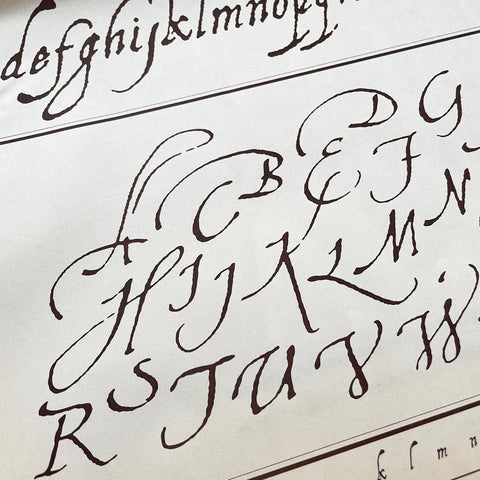 defghijklmnopq
A C B E D F G
H I J K L M N
R S T U V W
k l m n